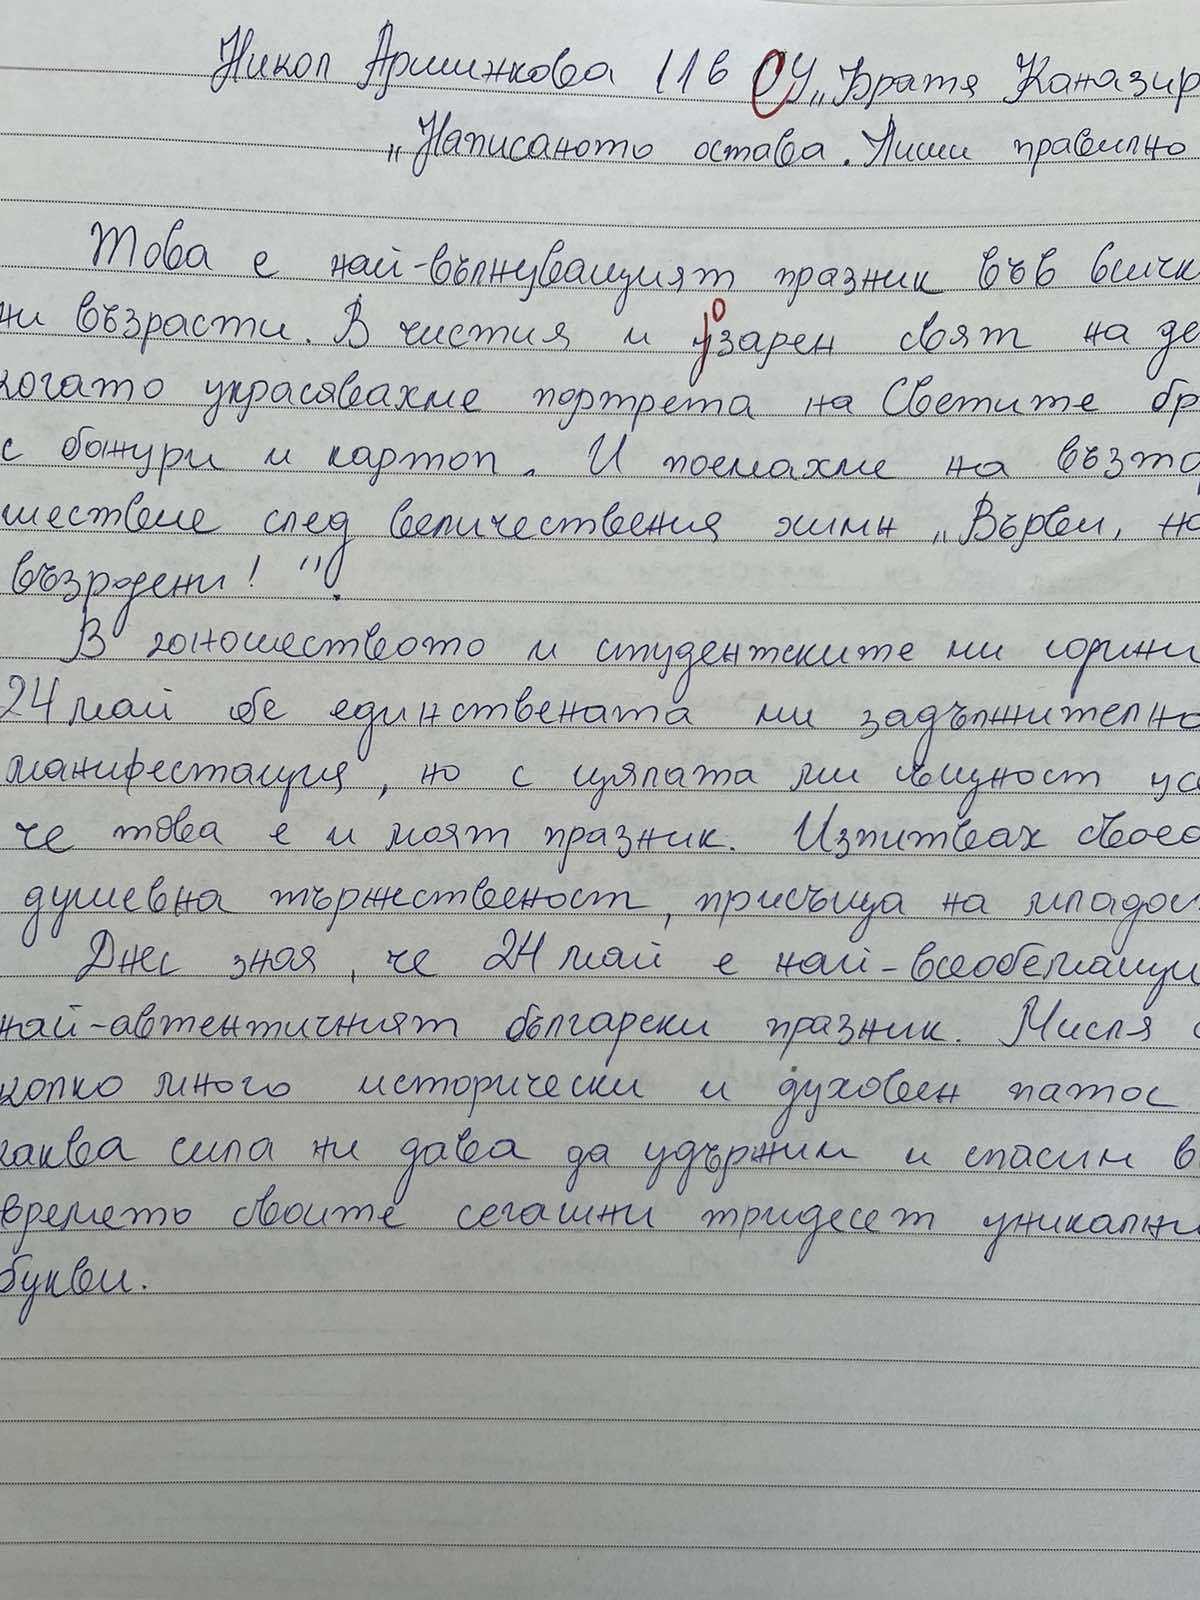 Никол Аршинкова 11в ОУ „Братя Каназир
„Написаното остава. Пиши правилно
Това е най-вълнуващият празник във всичк
ни възрасти. В чистия и узарен свят на де
когато украсявахме портрета на Светите бр
с божури и картоп. И поемахме на възтор
шествие след величествения химн „Върви, на
възродени!".
В юношеството и студентските ми години
24 май бе единствената ми задължителна
манифестация, но с цялата ми същност усе
че това е и моят празник. Изпитвах своео
душевна тържественост, присъща на младос
Днес зная, че 24 май е най-всеобемащи
най-автентичният български празник. Мисля с
колко много исторически и духовен патос
каква сила ни дава да удържим и спасим в
времето своите сегашни тридесет уникални
букви.